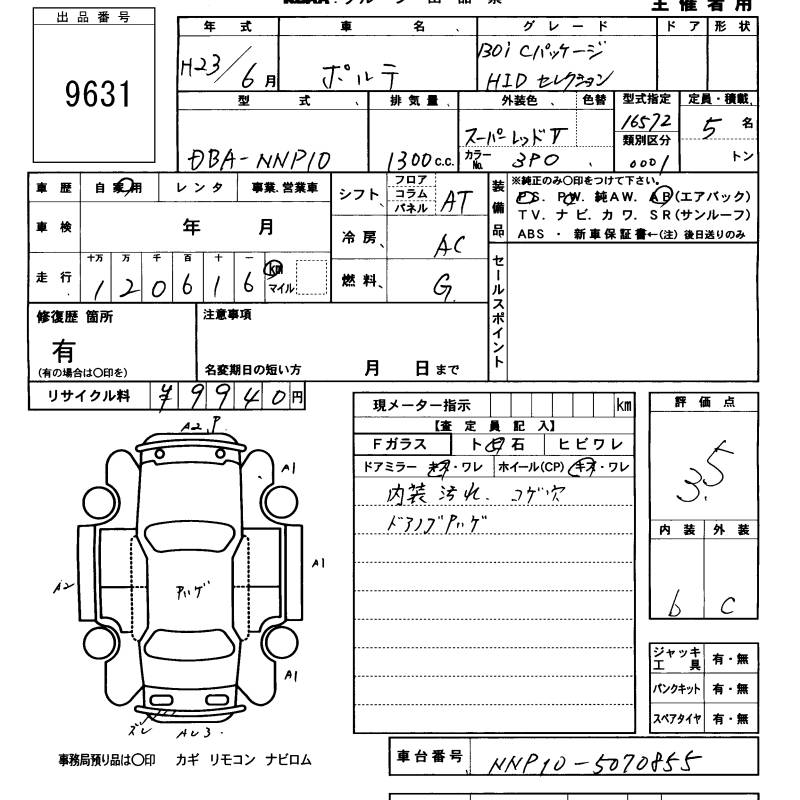 出品番号
9631
主催者用
年式 車名、 グレード ドア 形状
H23/6月 ポルテ 130i Cパッケージ
HID セレクション
型式、 排気量、 外装色、 色替 型式指定 定員・積載、
16572 5名
スーパーレッドV 類別区分
DBA-NNP10 1300c.c. カラーNo. 3P0 0001 トン
車歴 自家用 レンタ 事業.営業車
シフト、 フロア コラム パネル AT
装備品 ※純正のみ○印をつけて下さい。
PS. PW. 純AW. AB(エアバック)
TV. ナビ. カワ. SR(サンルーフ)
ABS ・ 新車保証書←(注) 後日送りのみ
車検 年 月
冷房、 AC
走行 十万 万 千 百 十 一
120616 km マイル
燃料、 G
セールスポイント
修復歴 箇所
有
(有の場合は○印を)
注意事項
名変期日の短い方 月 日まで
リサイクル料 ¥9940円
現メーター指示 km
【査定員記入】
Fガラス ト日石 ヒビワレ
ドアミラー キズ・ワレ ホイール(CP) キズ・ワレ
内装 汚れ. コゲ穴
ドアノブ ハゲ
評価点
3.5
内装 外装
b C
A2 P
A1
A2
A1
ハゲ
A1
ズレ AU3
ジャッキ工具 有・無
パンクキット 有・無
スペアタイヤ 有・無
事務局預り品は○印 カギ リモコン ナビロム
車台番号 NNP10-5070855